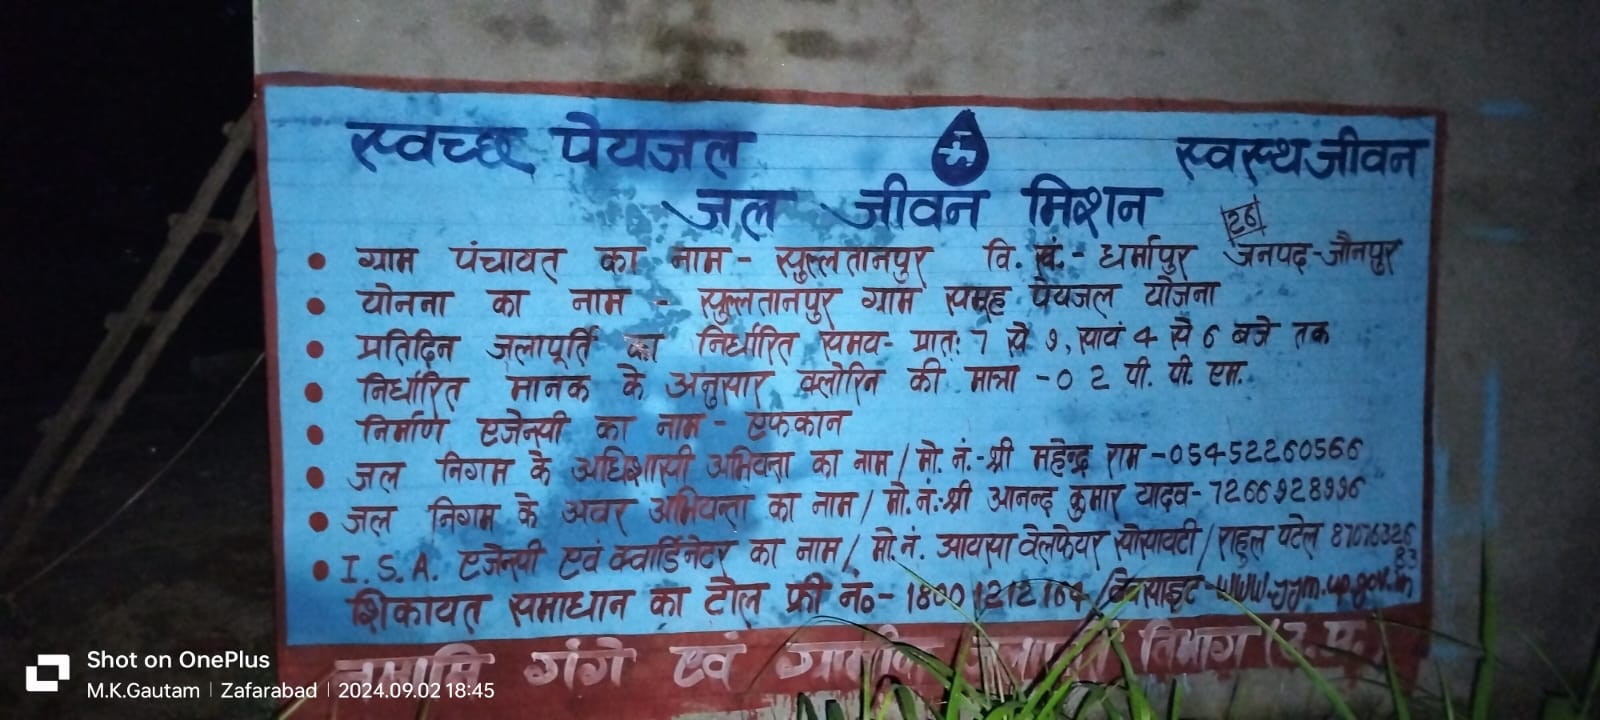 स्वच्छ पेयजल स्वस्थ जीवन
जल जीवन मिशन
26
• ग्राम पंचायत का नाम - सुल्लतानपुर वि. खं. - धर्मापुर जनपद - जौनपुर
• योनना का नाम - सुल्लतानपुर ग्राम समूह पेयजल यौजना
• प्रतिदिन जलापूर्ति का निर्धारित समय - प्रातः 7 से 9, सायं 4 से 6 बजे तक
• निर्धारित मानक के अनुसार क्लोरिन की मात्रा - 0 2 पी. पी. एम.
• निर्माण एजेन्सी का नाम - एफकान
• जल निगम के अधिशासी अभियन्ता का नाम / मो. नं. - श्री महेन्द्र राम - 05452260566
• जल निगम के अवर अभियन्ता का नाम / मो. नं. श्री आनन्द कुमार यादव - 7266928996
• I. S. A. एजेन्सी एवं क्वार्डिनेटर का नाम / मो. नं. आयसा वेलफेयर सोसायटी / राहुल पटेल 87076326
83
शिकायत समाधान का टौल फ्री नं० - 18001212164 / वेबसाइट - www.jjm.up.gov.in
नमामि गंगे एवं ग्रामीण जलापूर्ति विभाग (उ.प्र.)
Shot on OnePlus
M.K.Gautam | Zafarabad | 2024.09.02 18:45